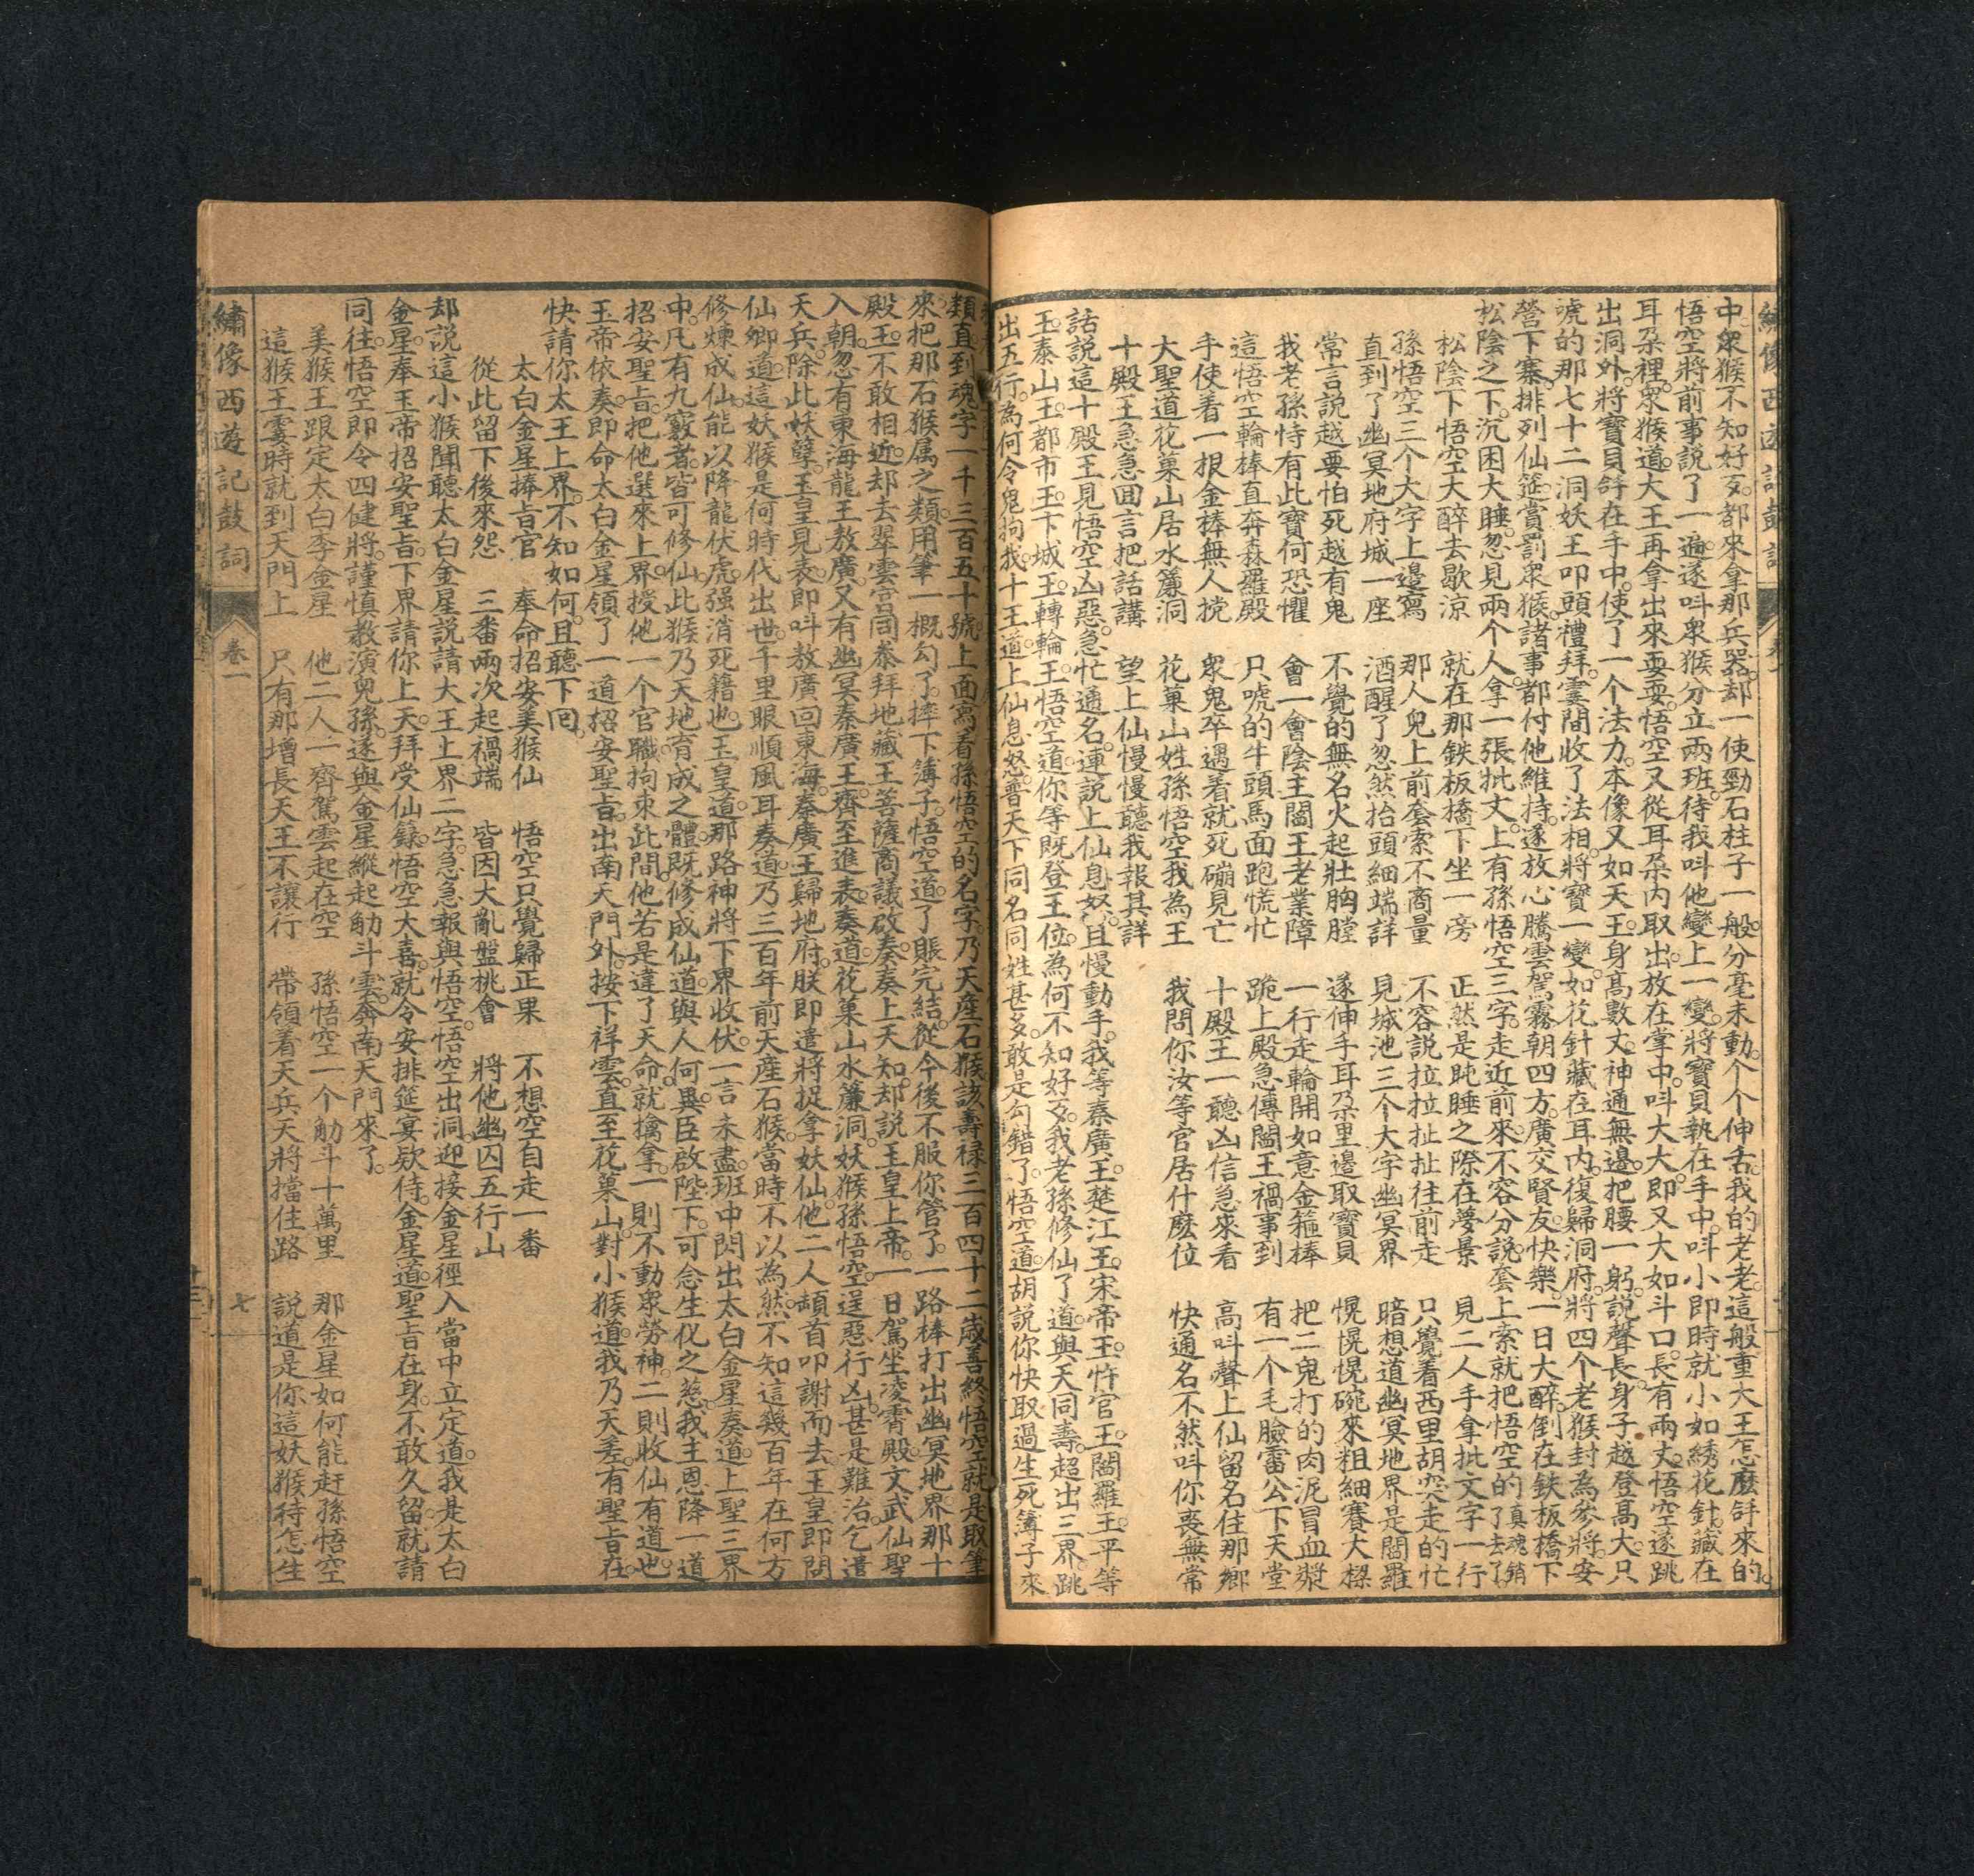 繡像西遊記鼓詞
中。衆猴不知好歹。都來拿那兵器。却一使勁石柱子一般。分毫未動。个个伸舌。我的老老。這般重大王怎麽舒來的。
悟空將前事説了一遍。遂呌衆猴分立兩班。待我呌他變上一變。將寶貝執在手中。呌小即時就小如綉花針。藏在
耳朶裡。衆猴道。大王再拿出來耍耍。悟空又從耳朶内取出。放在掌中。呌大大。即又大如斗口。長有兩丈。悟空遂跳
出洞外。將寶貝舒在手中。使了一个法力。本像又如天王。身髙數丈。神通無邊。把腰一躬。説聲長。身子越登髙大。只
唬的那七十二洞妖王叩頭禮拜。霎間收了法相。將寶一變。如花針藏在耳内。復歸洞府。將四个老猴封為參將。安
營下寨。排列仙筵。賞罰衆猴。諸事都付他維持。遂放心騰雲駕霧。朝四方。廣交賢友。快樂。一日大醉。倒在鉄板橋下
松陰之下。沉困大睡。忽見兩个人。拿一張批文。上有孫悟空三字。走近前來。不容分説。套上索就把悟空的真魂銷了去了
松陰下悟空大醉去歇涼　就在那鉄板橋下坐一旁　正然是盹睡之際在夢景　見二人手拿批文字一行
孫悟空三个大字上邊寫　那人兒上前套索不商量　不容説拉拉扯扯往前走　只覺着西里胡突走的忙
直到了幽冥地府城一座　酒醒了忽然抬頭細端詳　見城池三个大字幽冥界　暗想道幽冥地界是閻羅
常言説越要怕死越有鬼　不覺的無名火起壯胸膛　遂伸手耳朶里邊取寶貝　愰愰愰碗來粗細賽大樑
我老孫恃有此寶何恐懼　會一會陰王閻王老業障　一行走輪開如意金箍棒　把二鬼打的肉泥冒血漿
這悟空輪棒直奔森羅殿　只唬的牛頭馬面跑慌忙　跪上殿急傳閻王禍事到　有一个毛臉雷公下天堂
手使着一根金棒無人撓　衆鬼卒遇着就死磞見亡　十殿王一聽凶信急來看　高呌聲上仙留名住那鄉
大聖道花菓山居水簾洞　花菓山姓孫悟空我為王　我問你汝等官居什麽位　快通名不然呌你喪無常
十殿王急急囬言把話講　望上仙慢慢聽我報其詳
話説這十殿王見悟空凶惡。急忙通名。連説上仙息怒。且慢動手。我等秦廣王。楚江王。宋帝王。忤官王。閻羅王。平等
王。泰山王。都市王。卞城王。轉輪王。悟空道。你等既登王位。為何不知好歹。我老孫修仙了道。與天同壽。超出三界。跳
出五行。為何令鬼拘我。十王道。上仙息怒。普天下同名同姓甚多。敢是勾錯了。悟空道。胡説。你快取過生死簿子來
類直到魂字一千三百五十號。上面寫着孫悟空的名字。乃天産石猴。該壽禄三百四十二歲善終。悟空就是取筆
來。把那石猴属之類。用筆一概勾了。摔下簿子。悟空道。了賬完結。從今後不服你管了。一路棒打出幽冥地界。那十
殿王。不敢相近。却去翠雲宫。同叅拜地藏王菩薩。商議啟奏。奏上天知。却説玉皇上帝。一日駕坐凌霄殿。文武仙聖
入朝。忽有東海龍王敖廣。又有幽冥秦廣王。齊至進表奏道。花菓山水簾洞。妖猴孫悟空。逞惡行凶。甚是難治。乞遣
天兵。除此妖孽。玉皇見表。即呌敖廣回東海。秦廣王歸地府。朕即遣將捉拿妖仙。他二人頓首叩謝而去。玉皇即問
仙卿道。這妖猴是何時代出世。千里眼順風耳奏道。乃三百年前天産石猴。當時不以為然。不知這幾百年在何方
修煉成仙。能以降龍伏虎。强消死籍也。玉皇道。那路神將下界收伏。一言未盡。班中閃出太白金星奏道。上聖三界
中。凡有九竅者。皆可修仙。此猴乃天地育成之體。既修成仙道。與人何異。臣啟陛下。可念生化之慈。我主恩降一道
招安聖旨。把他選來上界。授他一个官職。拘束此間。他若是違了天命。就擒拿。一則不動衆勞神。二則收仙有道也。
玉帝依奏。即命太白金星。領了一道招安聖旨。出南天門外。按下祥雲。直至花菓山。對小猴道。我乃天差。有聖旨在
快請你太王上界。不知如何。且聽下囘。
太白金星捧旨官　奉命招安美猴仙　悟空只覺歸正果　不想空自走一番
從此留下後來怨　三番兩次起禍端　皆因大亂盤桃會　將他幽囚五行山
却説這小猴聞聽太白金星説。請大王上界二字。急急報與悟空。悟空出洞迎接。金星徑入當中立定道。我是太白
金星。奉玉帝招安聖旨。下界請你上天。拜受仙籙。悟空大喜。就令安排筵宴欵待。金星道。聖旨在身。不敢久留。就請
同往。悟空即令四健將。謹慎教演兒孫。遂與金星縱起觔斗雲。奔南天門來了。
美猴王跟定太白李金星　他二人一齊駕雲起在空　孫悟空一个觔斗十萬里　那金星如何能赶孫悟空
這猴王霎時就到天門上　只有那增長天王不讓行　帶領着天兵天將擋住路　説道是你這妖猴待怎生
繡像西遊記鼓詞　卷一　七